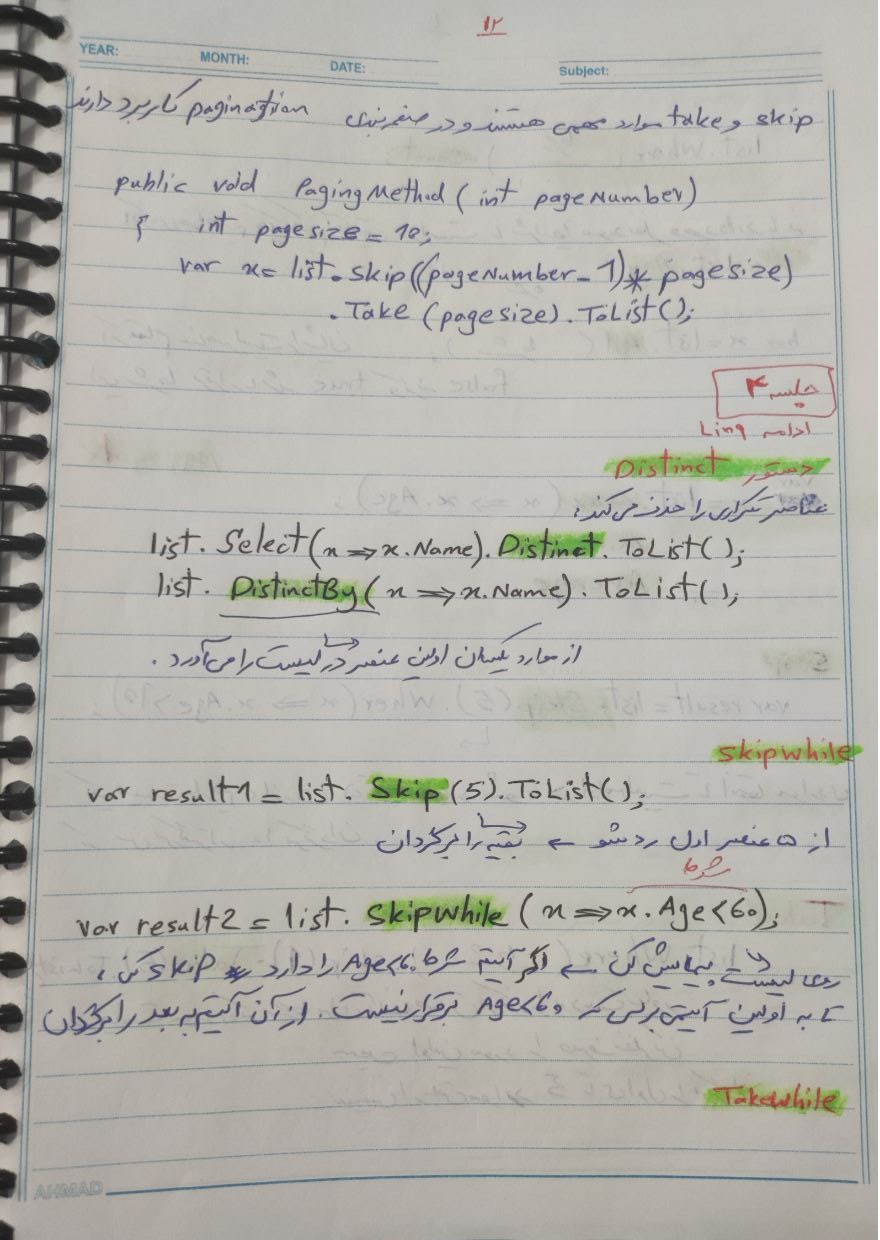 ۱۲
YEAR: MONTH: DATE: Subject:
skip و take موارد مهمی هستند و در صفحه بندی pagination کاربرد دارند
public void PagingMethod (int pageNumber)
{ int pagesize = 10;
var x = list.Skip((pageNumber - 1) * pagesize)
.Take (pagesize).ToList();
جلسه ۴
ادامه Linq
دستور Distinct
عناصر تکراری را حذف می‌کند:
list.Select(x => x.Name).Distinct.ToList();
list.DistinctBy(x => x.Name).ToList();
از موارد یکسان اولین عنصر در لیست را می‌آورد.
skipwhile
var result1 = list.Skip(5).ToList();
از ۵ عنصر اول رد شو ← بقیه را برگردان
شرط
var result2 = list.Skipwhile (x => x.Age<60);
روی لیست پیمایش کن ← اگر آیتم شرط Age<60 را دارد skip کن،
تا به اولین آیتمی برس که Age<60 برقرار نیست. از آن آیتم به بعد را برگردان
Takewhile
AHMAD